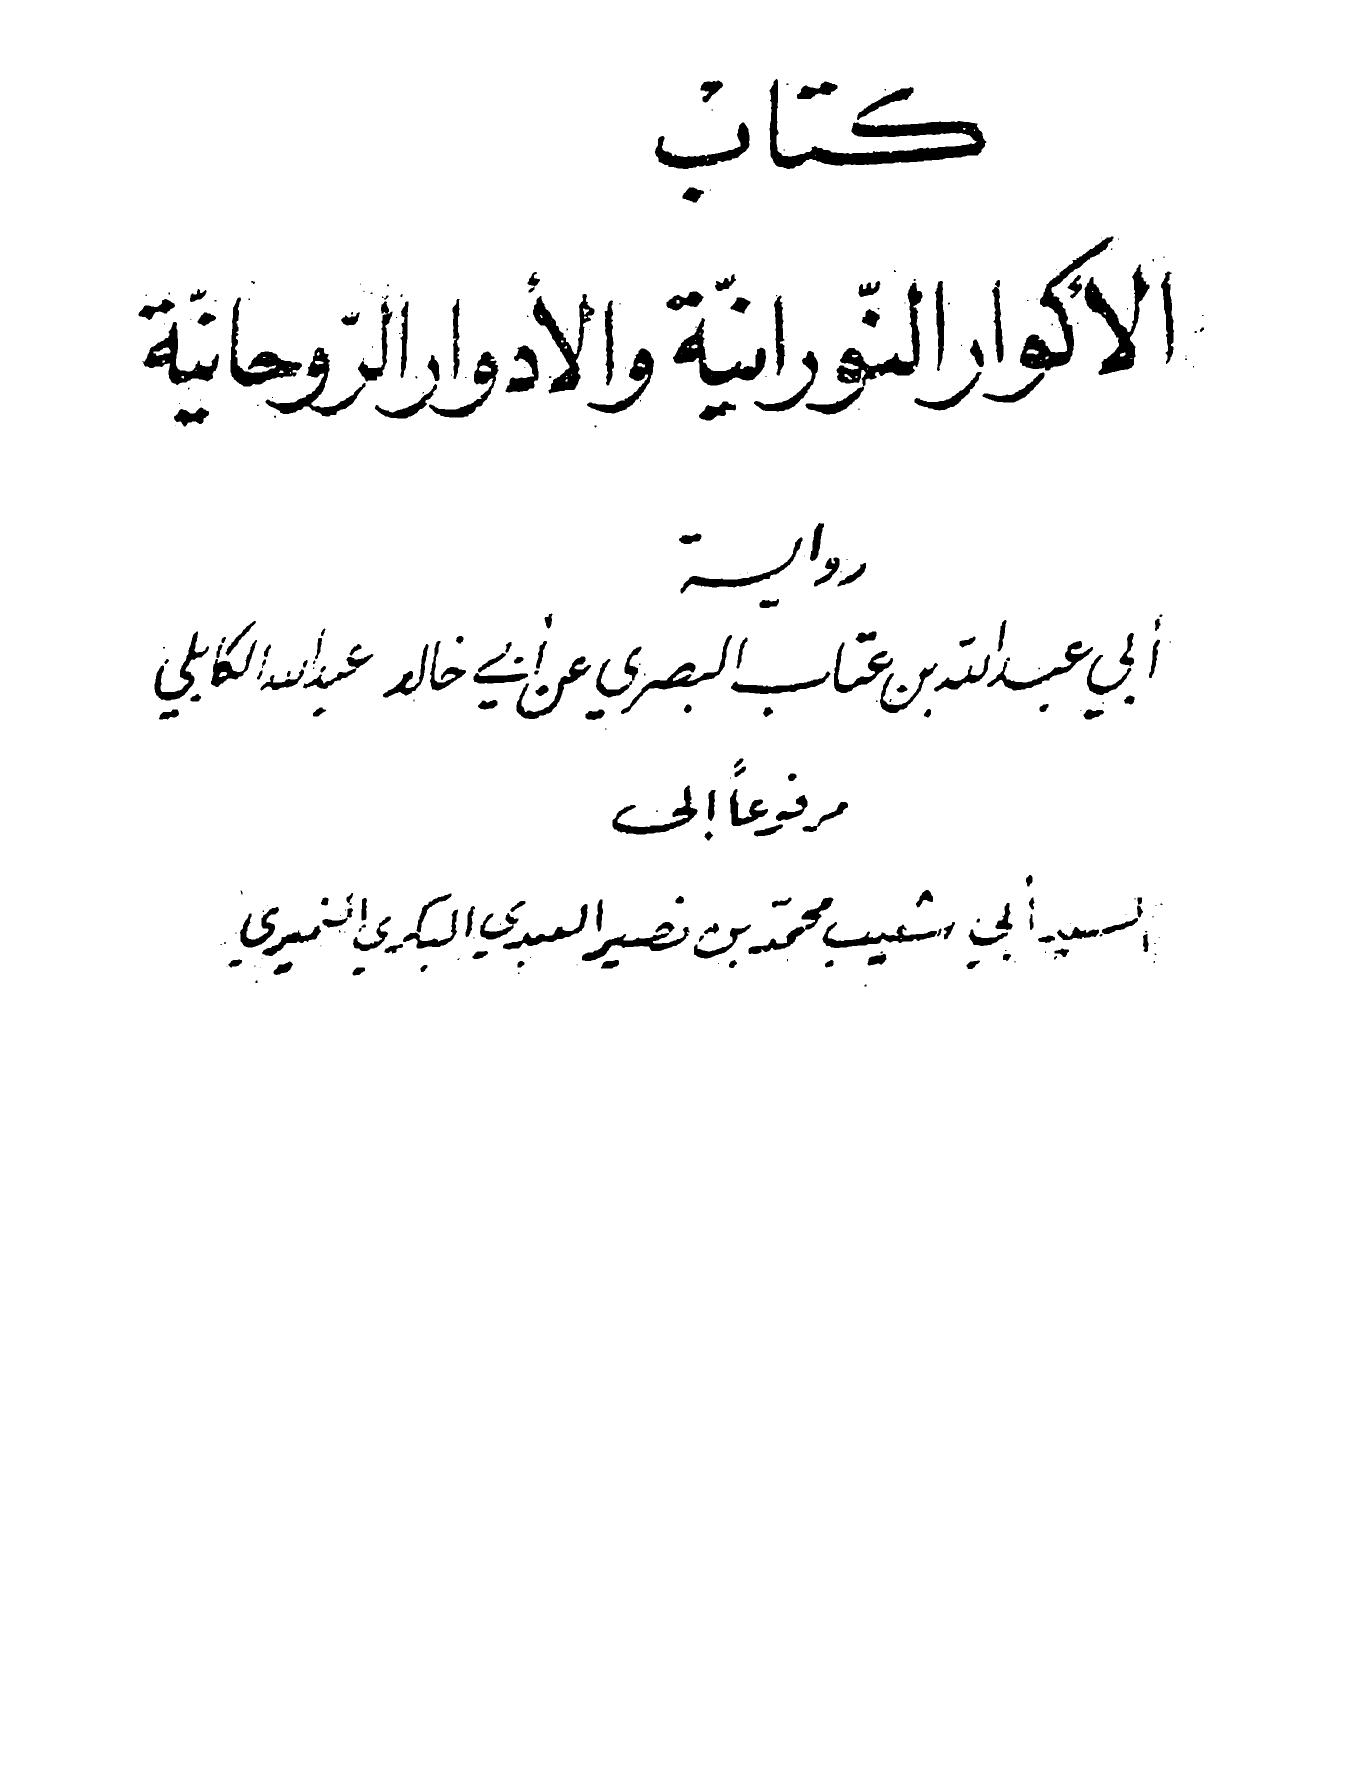 كتاب
الأكوار النّورانيّة والأدوار الرّوحانيّة
رواية
أبي عبد الله بن عتاب البصري عن أبي خالد عبد الله الكابلي
مرفوعاً إلى
السيد أبي شعيب محمّد بن نصير العبدي البكري النميري